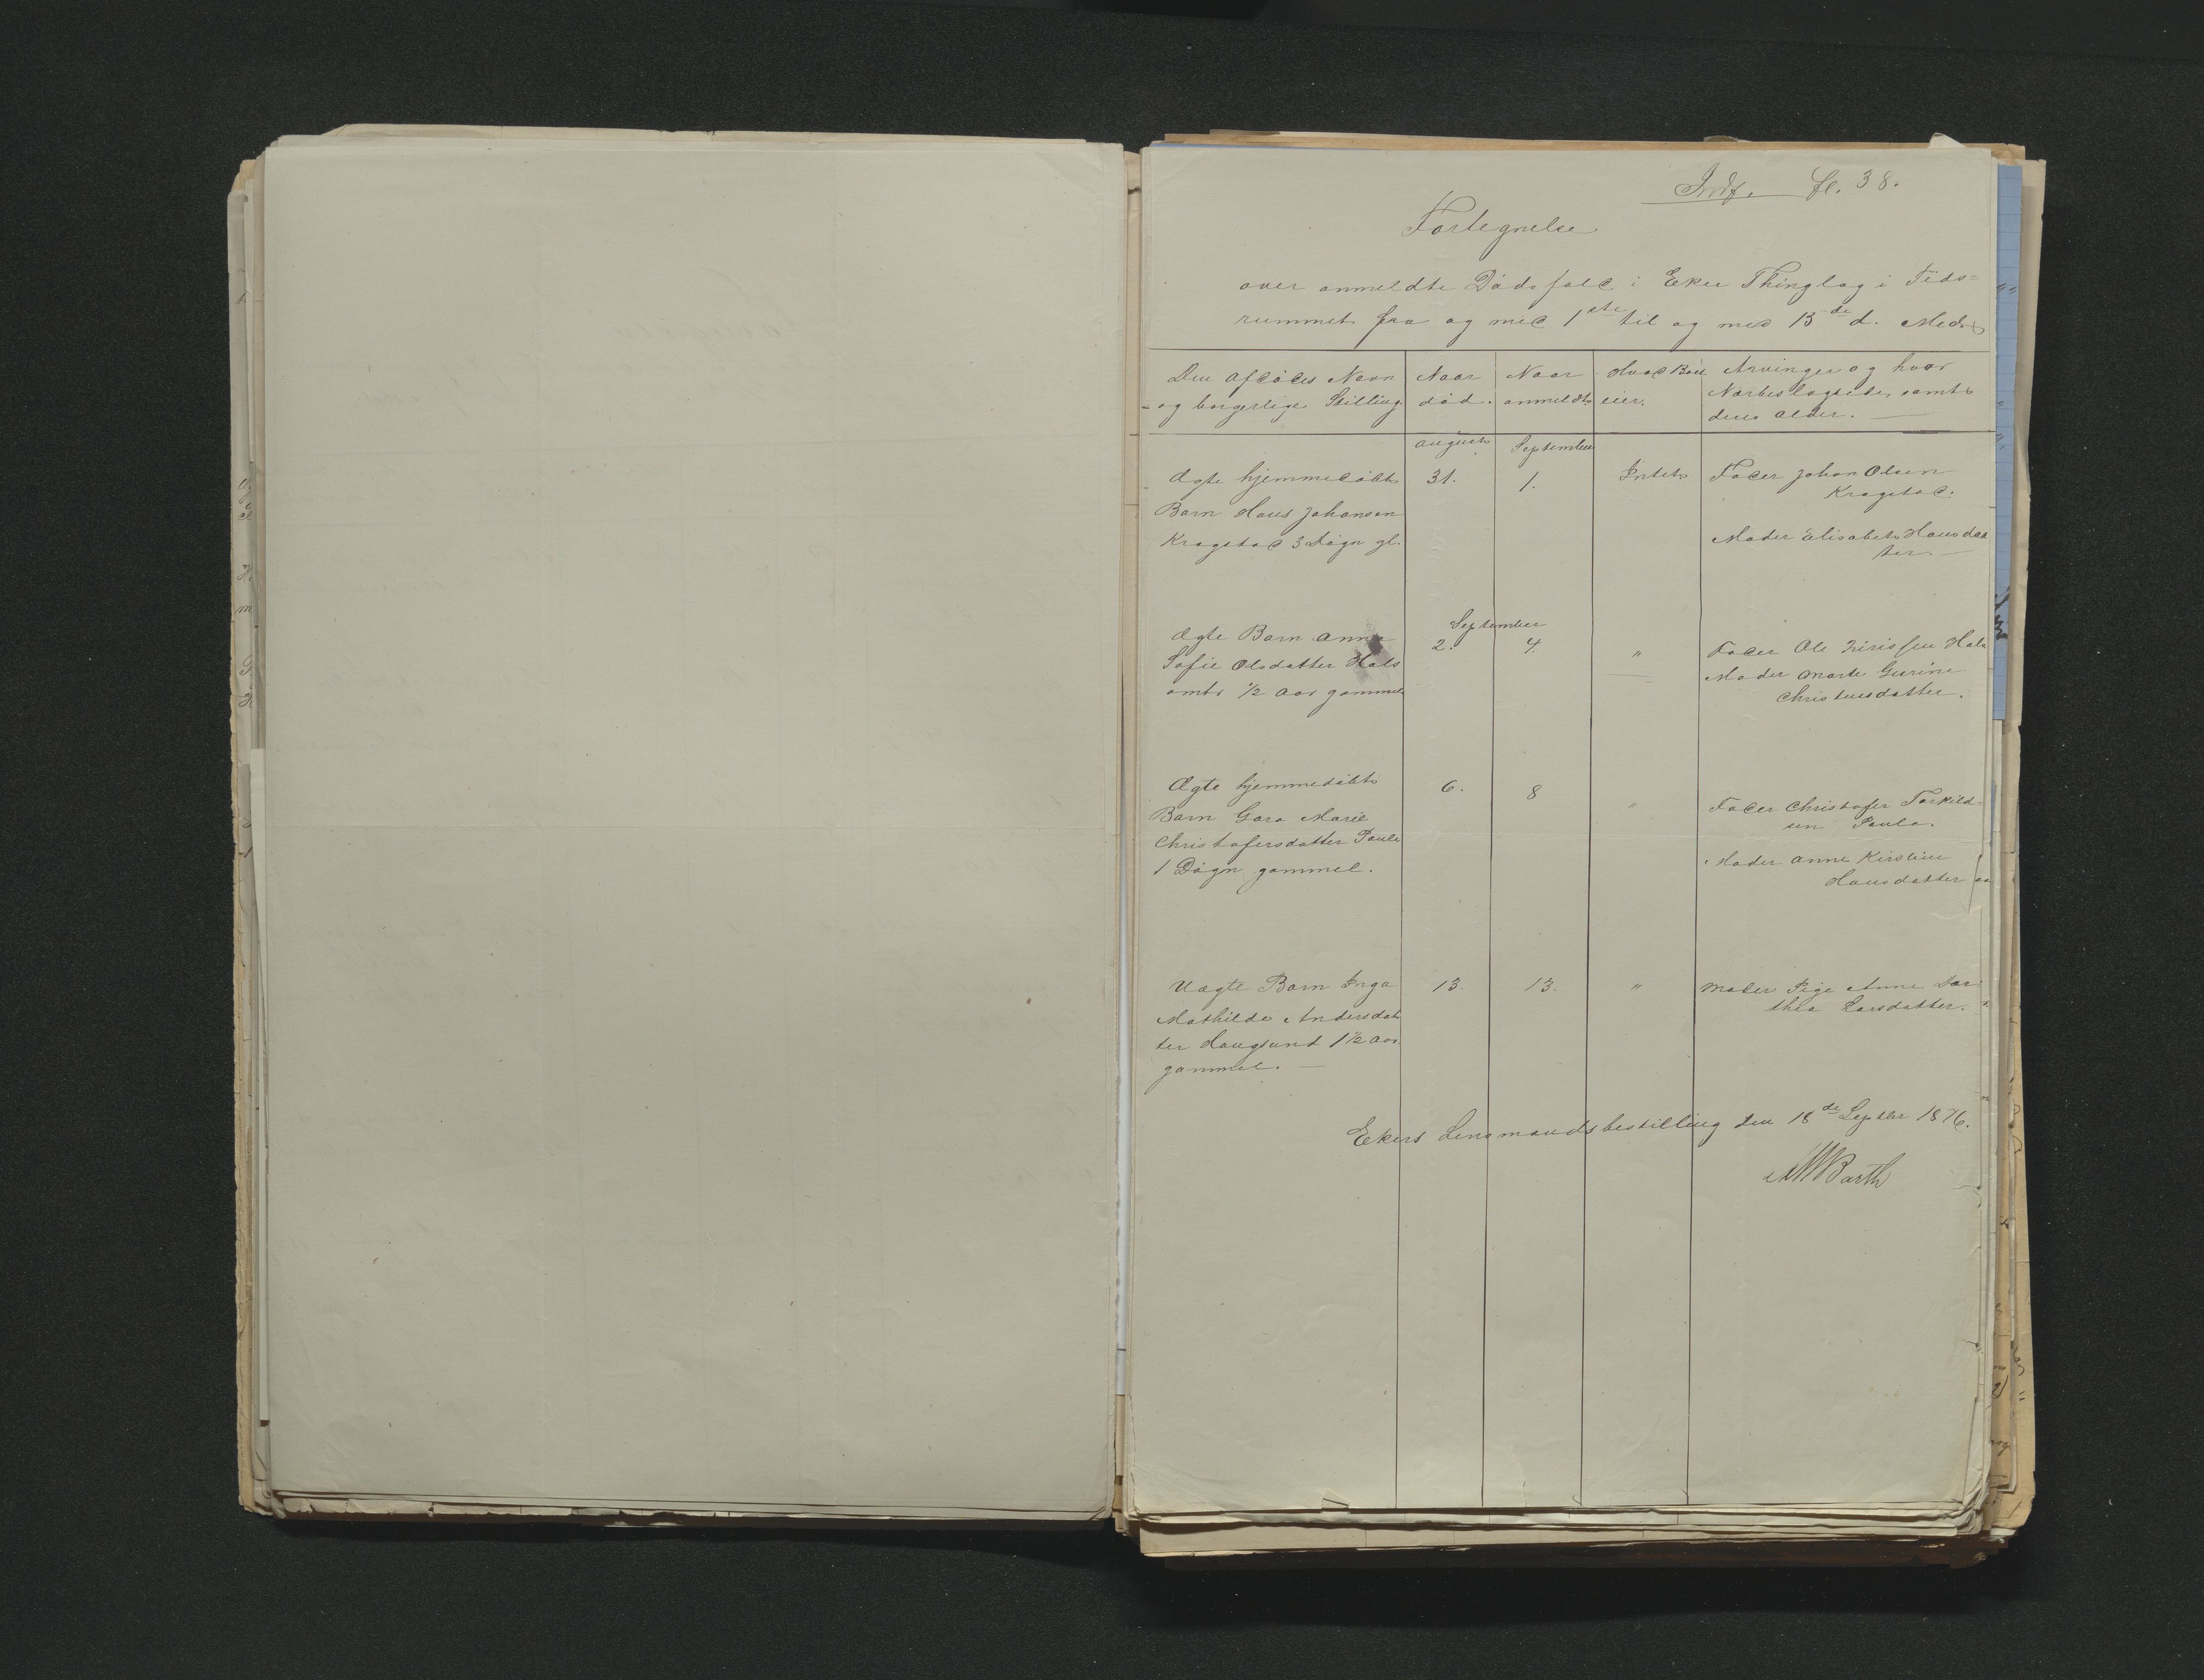 Indf. fl. 38.
Fortegnelse
over anmeldte Dødsfald i Eker Thinglag i Tids-
rummet fra og med 1ste til og med 15de d. Md.
Den afdødes Navn
og borgerlige Stilling.
Naar
død.
Naar
anmeldt
Hvad Boet
eier.
Arvinger og hvor
Nærbeslægtede, samt
deres alder.
august
September
Ægte hjemmedøbt
Barn Hans Johansen
Kragstad 3 Døgn gl.
31.
1.
Intet
Fader Johan Olsen
Kragstad.
Moder Elisabet Hansdat
ter.
September
Ægte Barn Anne
Sofie Olsdatter Hals
omtr ½ Aar gammel
2.
4.
"
Fader Ole Hals
Moder Marte Gurine
Christensdatter.
Ægte hjemmedøbt
Barn Gara Marie
Christofersdatter Paule
1 Døgn gammel.
6.
8
"
Fader Christofer Torkild-
sen Paule.
Moder Anne Kirstine
Hansdatter
Uægte Barn Inga
Mathilde Andersdat
ter Haugsund 1½ Aar
gammel.
13.
13.
"
Moder Pige Anne Dor
thea Larsdatter.
Ekers Lensmandsbestilling den 18de Septbr 1876.
Barth